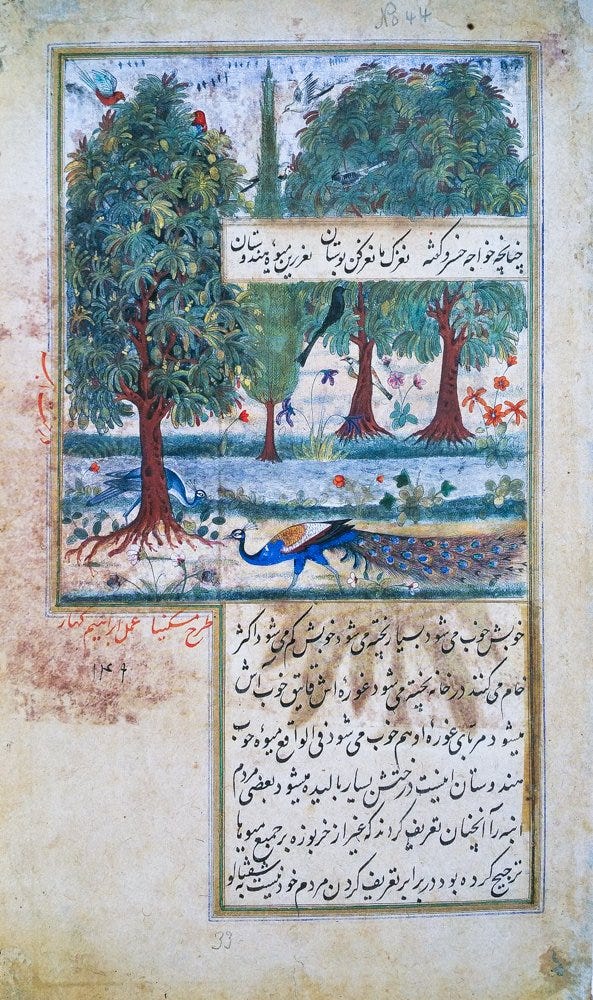 No 44
چنانچه خواجه خسرو گفته نغزک ما نغز کن بوستان نغزترین میوه هندوستان
خوبش خوب می‌شود بسیار پخته می‌شود خوبش کم می‌شود اکثر
خام می‌کنند در خانه پخته می‌شود غوره‌اش قاتق خوب آش
میشود مربای غوره او هم خوب می‌شود فی الواقع میوه خوب
هندوستان اینست درختش بسیار بالیده میشود بعضی مردم
انبه را آنچنان تعریف کردند که غیر از خربوزه بر جمیع میوها
ترجیح کرده بود در برابر تعریف کردن مردم خود نیست به شفتالو
طرح مسکینا عمل ابراهیم کهار
33